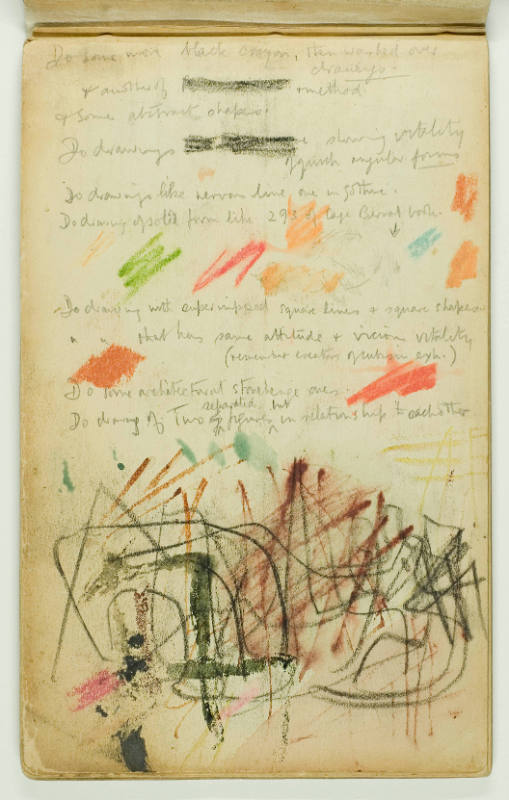 Do some more black crayon, then washed over
drawings.
& another of method.
& some abstract shapes.
Do drawings showing vitality
of quick angular forms
Do drawings like nervous line one in Gothic.
Do drawing of solid from like 293 of large Bernat book.
Do drawing with superimposed square lines & square shapes
" " that has same attitude & vicious vitality
(remember exh.)
Do some architectural stonehenge ones.
separated but
Do drawing of Two figures in relationship to each other